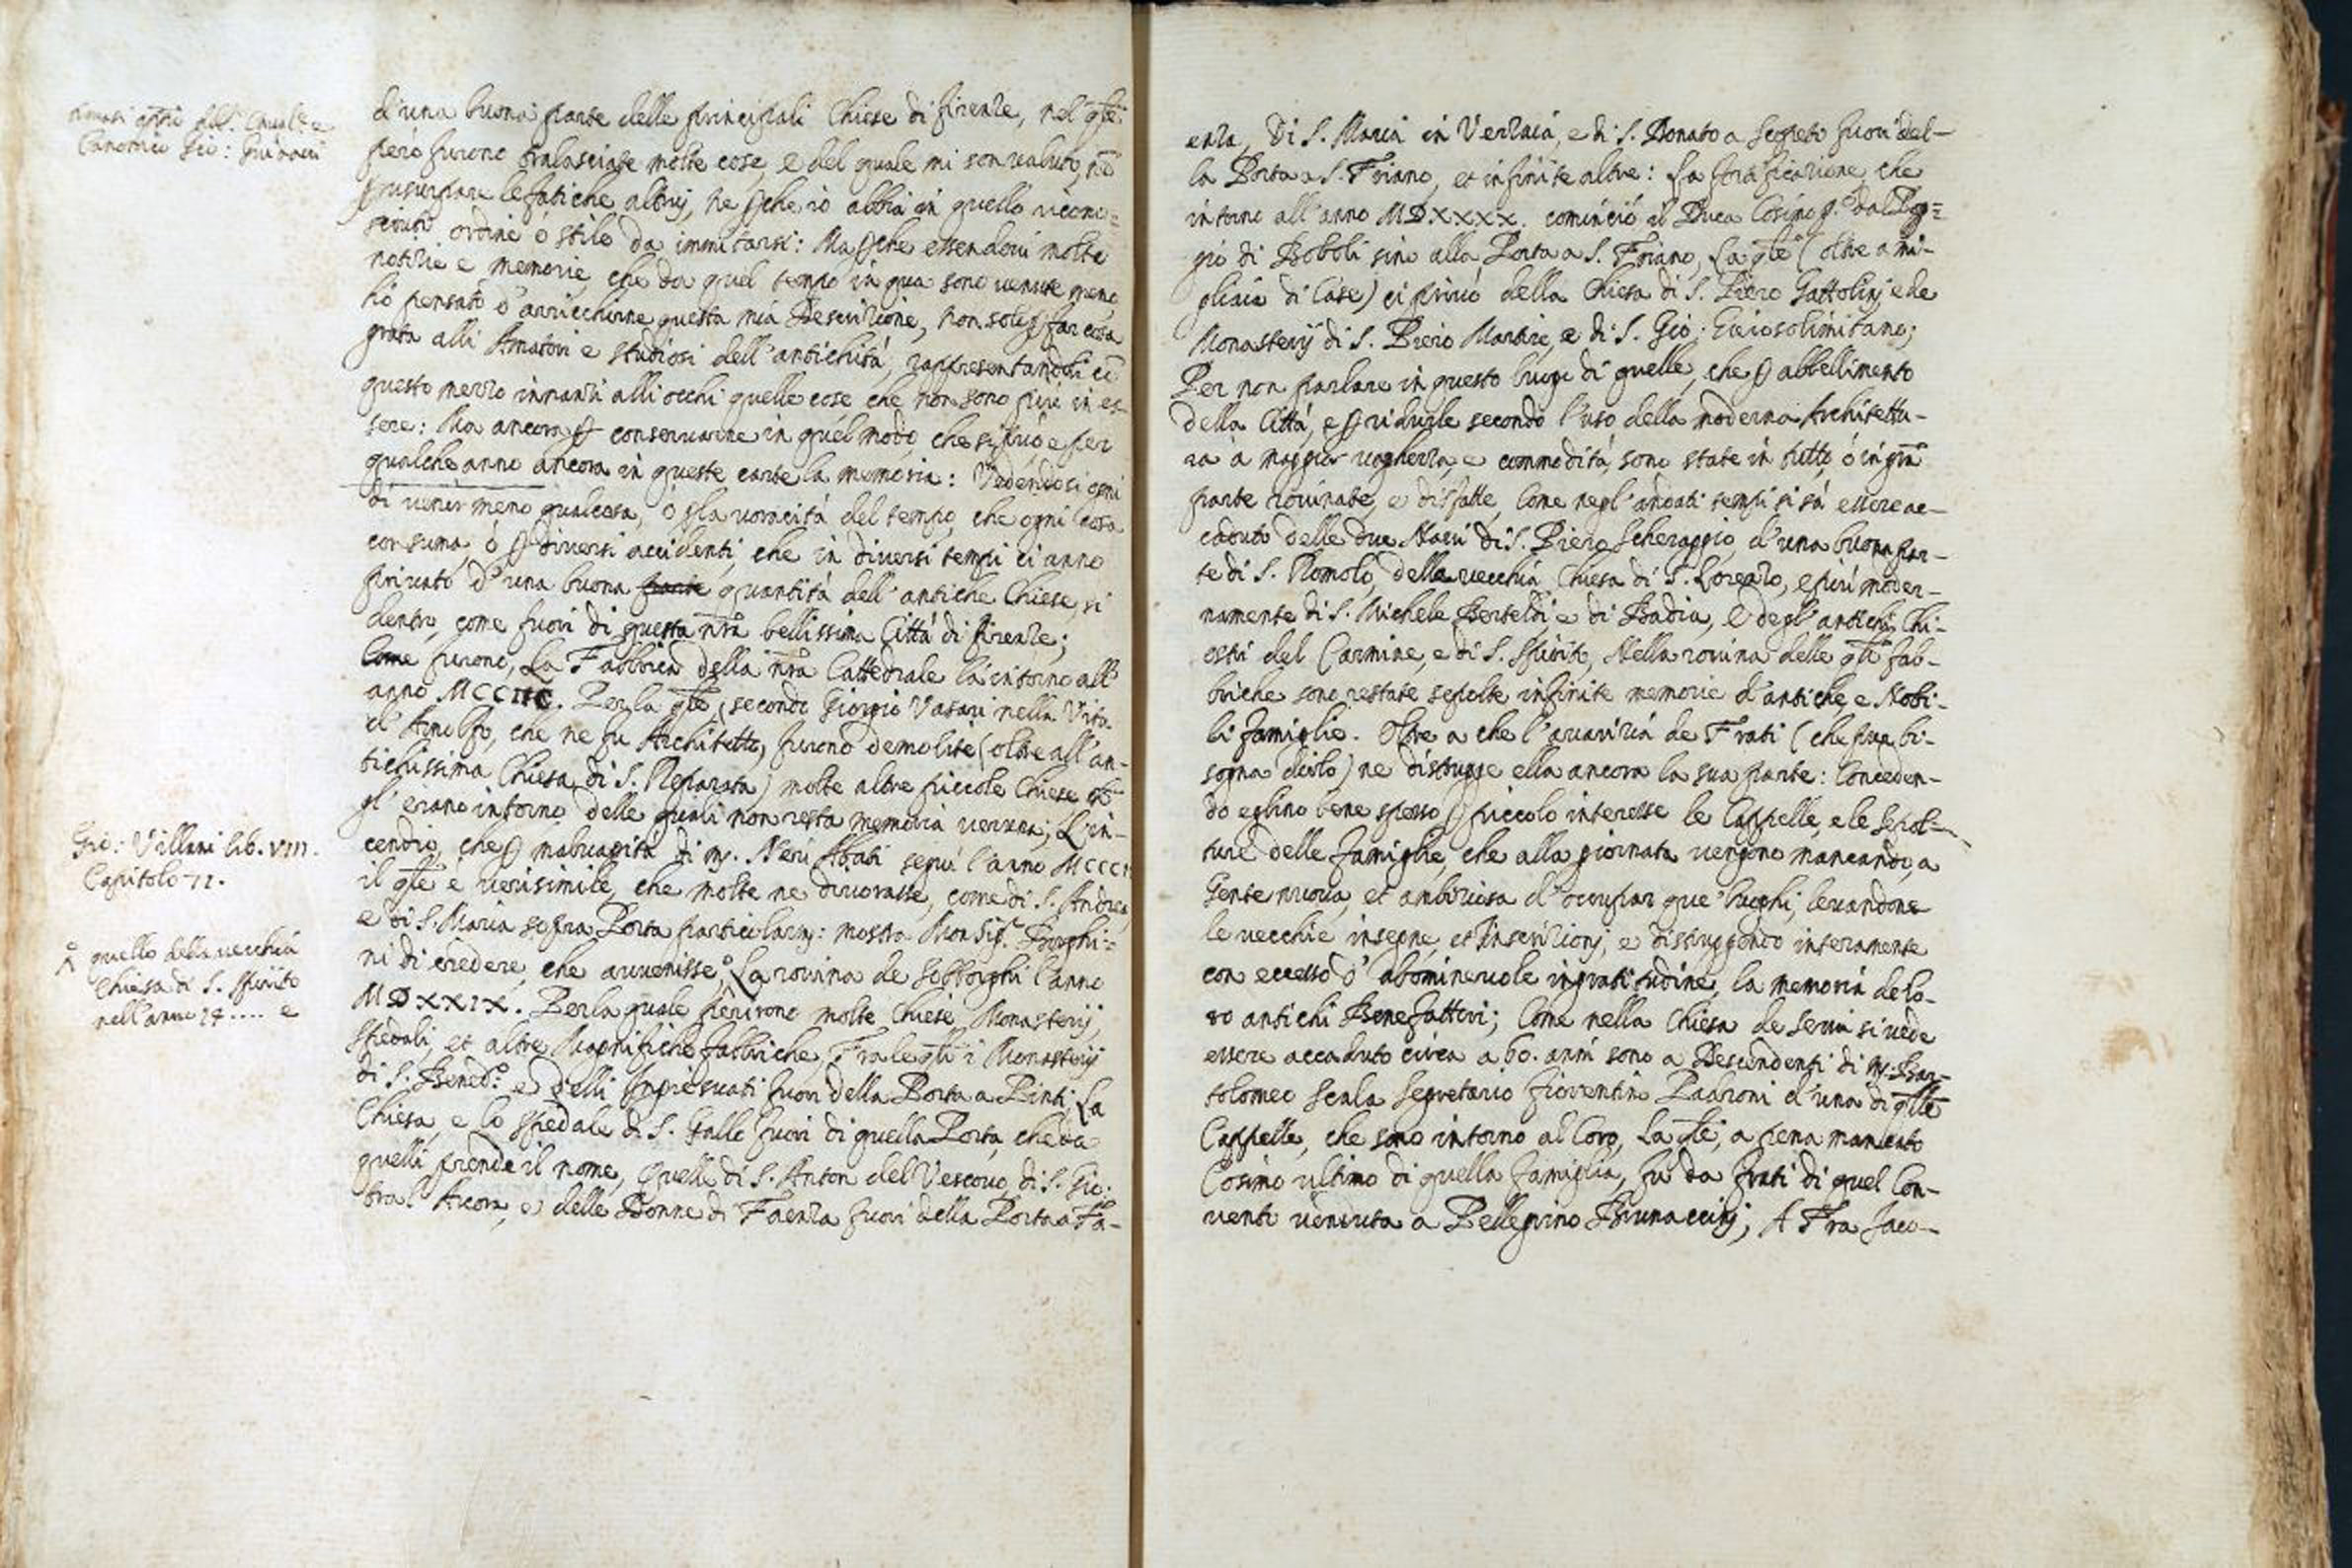 Canonico Gio: Guinacci
d'una buona parte delle principali Chiese di firenze, nel qle
però furono tralasciate molte cose, e del quale mi son valuto, nō
usurpare le fatiche altruj, ne che io abbia in quello ricono=
sciuti ordine ò stile da immitarsi: Ma che essendovi molte
notizie e memorie, che da quel tempo in qua sono venute meno
hò pensato d'arricchirne questa mia Descrizione, non solo far cosa
grata alli Amatori e studiosi dell'antichità, rappresentandoli cō
questo mezzo innanzi alli occhi quelle cose che non sono più in es-
sere: Ma ancora conservarne in quel modo, che si può e per
qualche anno ancora in queste carte la memoria: Vedendosi ogni
dì venir meno qualcosa, ò la voracità del tempo, che ogni cosa
consuma, ò diversi accidenti, che in diversi tempi ci anno
privato d'una buona parte quantità dell'antiche Chiese, sì
dentro, come fuori di questa nrā bellissima Città di firenze;
Come furono, La Fabbrica della nrā Cattedrale là intorno all'
anno MCCIIC. Per la qle, secondo Giorgio Vasari nella Vita
d'Arnolfo, che ne fu Architetto, furono demolite (oltre all'an-
tichissima Chiesa di S. Reparata) molte altre piccole Chiese
gl'erano intorno delle quali non resta memoria veruna; L'in-
Gio: Villani lib. VIII.
Capitolo 71.
cendio, che malvagità di m. Neri Abati seguì l'anno MCCCI
il qle è verisimile, che molte ne divorasse, come di S. Andrea,
e di S. Maria sopra Porta particolarm: mostra Monsig. Borghi=
quello della vecchia
Chiesa di S. Spirito
nell'anno 14.... e
ni di credere, che avvenisse, La rovina de Sobborghi l'anno
MDXXIX. Per la quale perirono molte Chiese, Monasterij,
Spedali, et altre Magnifiche fabbriche, Fra le qli i Monasterij
di S. Bened: e delli Ingiesuati fuori della Porta a Pinti, La
Chiesa, e lo Spedale di S. Gallo fuori di quella Porta, che da
quelli prende il nome, Quelle di S. Anton del Vescovo, di S. Gio:
tra l'Arcora, e delle Donne di Faenza fuori della Porta a Fa-
enza, Di S. Maria in Verzaia, e di S. Donato a Scopeto fuori del-
la Porta a S. Friano, et infinite altre: La fortificazione, che
intorno all'anno MDXXXX. cominciò il Duca Cosimo p.° dal Pog=
gio di Bobboli sino alla Porta a S. Friano, La qle (oltre a mi-
gliaia di Case) ci privò della Chiesa di S. Piero Gattolinj e de
Monasterij di S. Piero Martire, e di S. Gio: Gerosolimitano;
Per non parlare in questo luogo di quelle, che abbellimento
della Città, e ridurle secondo l'uso della moderna Architettu-
ra à maggior vaghezza, e commodità, sono state in tutto, ò in grā
parte rovinate, e disfatte, Come negl'andati tempi si sà essere ac-
caduto delle due Navi di S. Piero Scheraggio, d'una buona par-
te di S. Romolo, della vecchia Chiesa di S. Lorenzo, e più moder-
namente di S. Michele Berteldi, e di Badia, E degl'antichi Chi-
ostri del Carmine, e di S. Spirito, Nella rovina delle qli fab-
briche sono restate sepolte infinite memorie d'antiche, e Nobi-
li famiglie. Oltre a che l'avarizia de Frati (che pur bi-
sogna dirlo) ne distrugge ella ancora la sua parte: Conceden-
do eglino bene spesso piccolo interesse le Cappelle, e le Sepol-
ture delle famiglie, che alla giornata vengono mancando, a
Gente nuova, et ambiziosa d'occupar que' luoghi, levandone
le vecchie insegne, et Inscrizionj, e distruggendo interamente
con eccesso d'abominevole ingratitudine, la memoria de lo-
ro antichi Benefattori; Come nella Chiesa de Servi si vede
essere accaduto circa a 60. anni sono a Descendenti di m. Bar-
tolomeo Scala Segretario fiorentino Padroni d'una di qlle
Cappelle, che sono intorno al Coro, La qle, a pena mancato
Cosimo ultimo di quella famiglia, fù da frati di quel Con-
vento venduta a Pellegrino Brunaccinj; A Fra Jaco-